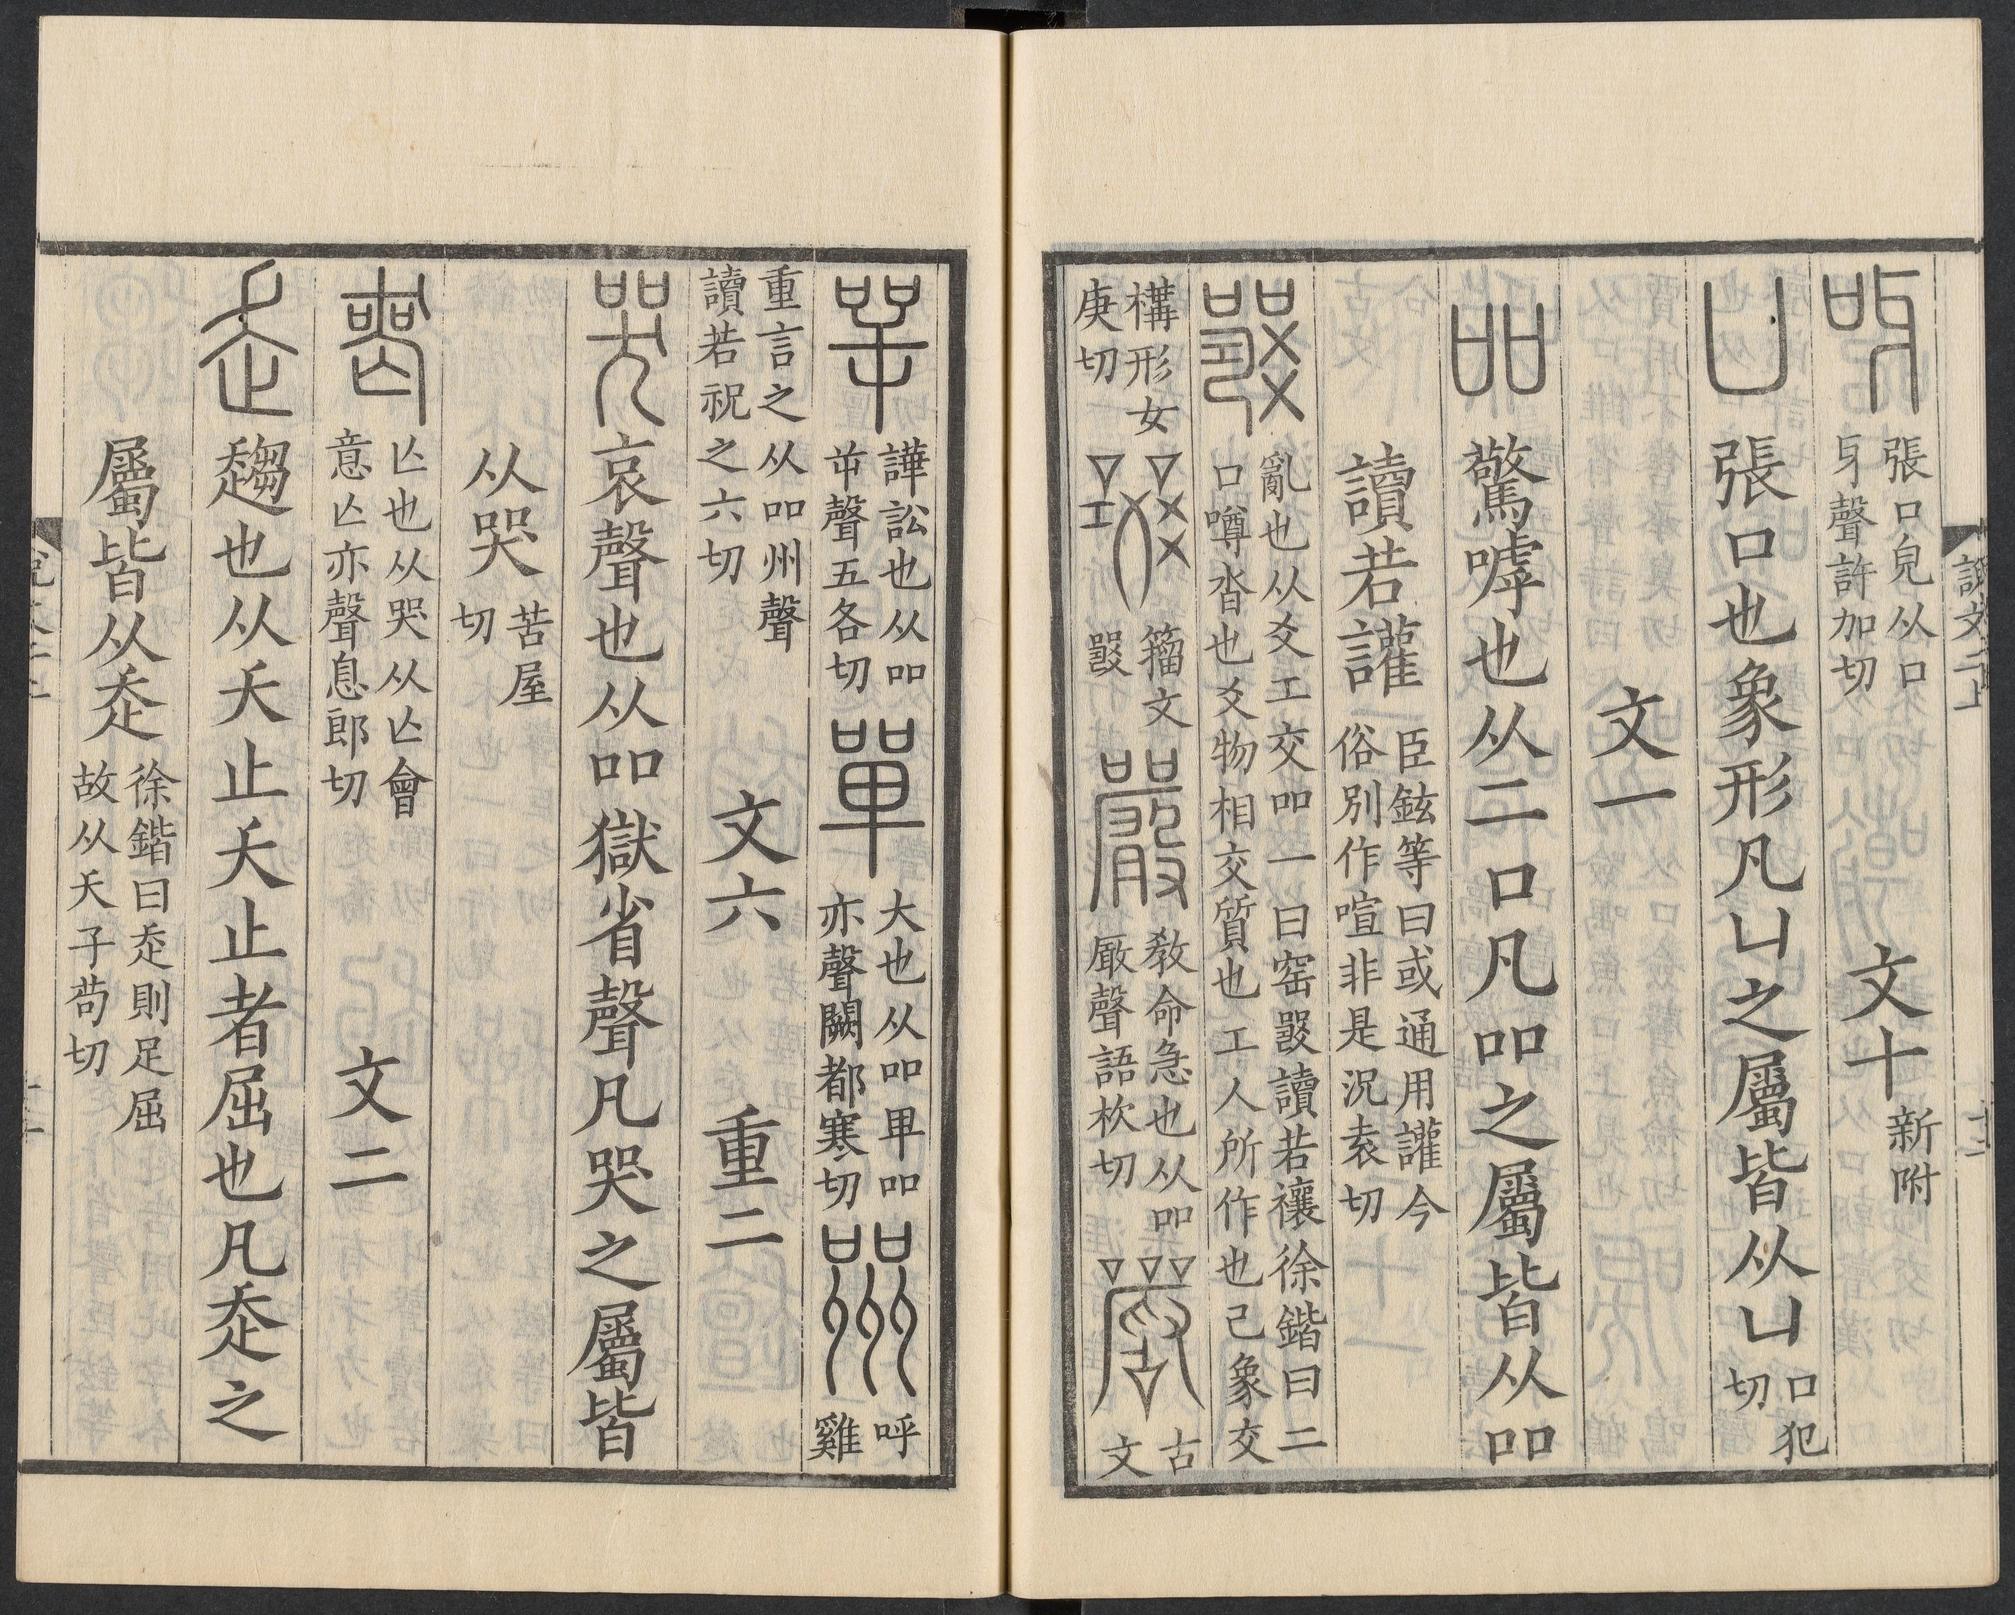 說文二上 十二
呀 張口皃从口牙聲許加切 文十 新附
凵 張口也象形凡凵之屬皆从凵 口犯切
文一
吅 驚嘑也从二口凡吅之屬皆从吅
讀若讙 臣鉉等曰或通用讙今俗別作喧非是況袁切
𤕦 亂也从爻工交吅一曰窒𤕦讀若禳徐鍇曰二口噂沓也爻物相交質也工人所作也己象交
構形女庚切 籀文𤕦 嚴 教命急也从吅厰聲語杴切 古文
咢 譁訟也从吅屰聲五各切 單 大也从吅𠦒吅亦聲闕都寒切 喌 呼雞
重言之从吅州聲讀若祝之六切 文六 重二
哭 哀聲也从吅獄省聲凡哭之屬皆
从哭 苦屋切
喪 亾也从哭从亾會意亾亦聲息郎切 文二
走 趨也从夭止夭止者屈也凡走之
屬皆从走 徐鍇曰走則足屈故从夭子苟切